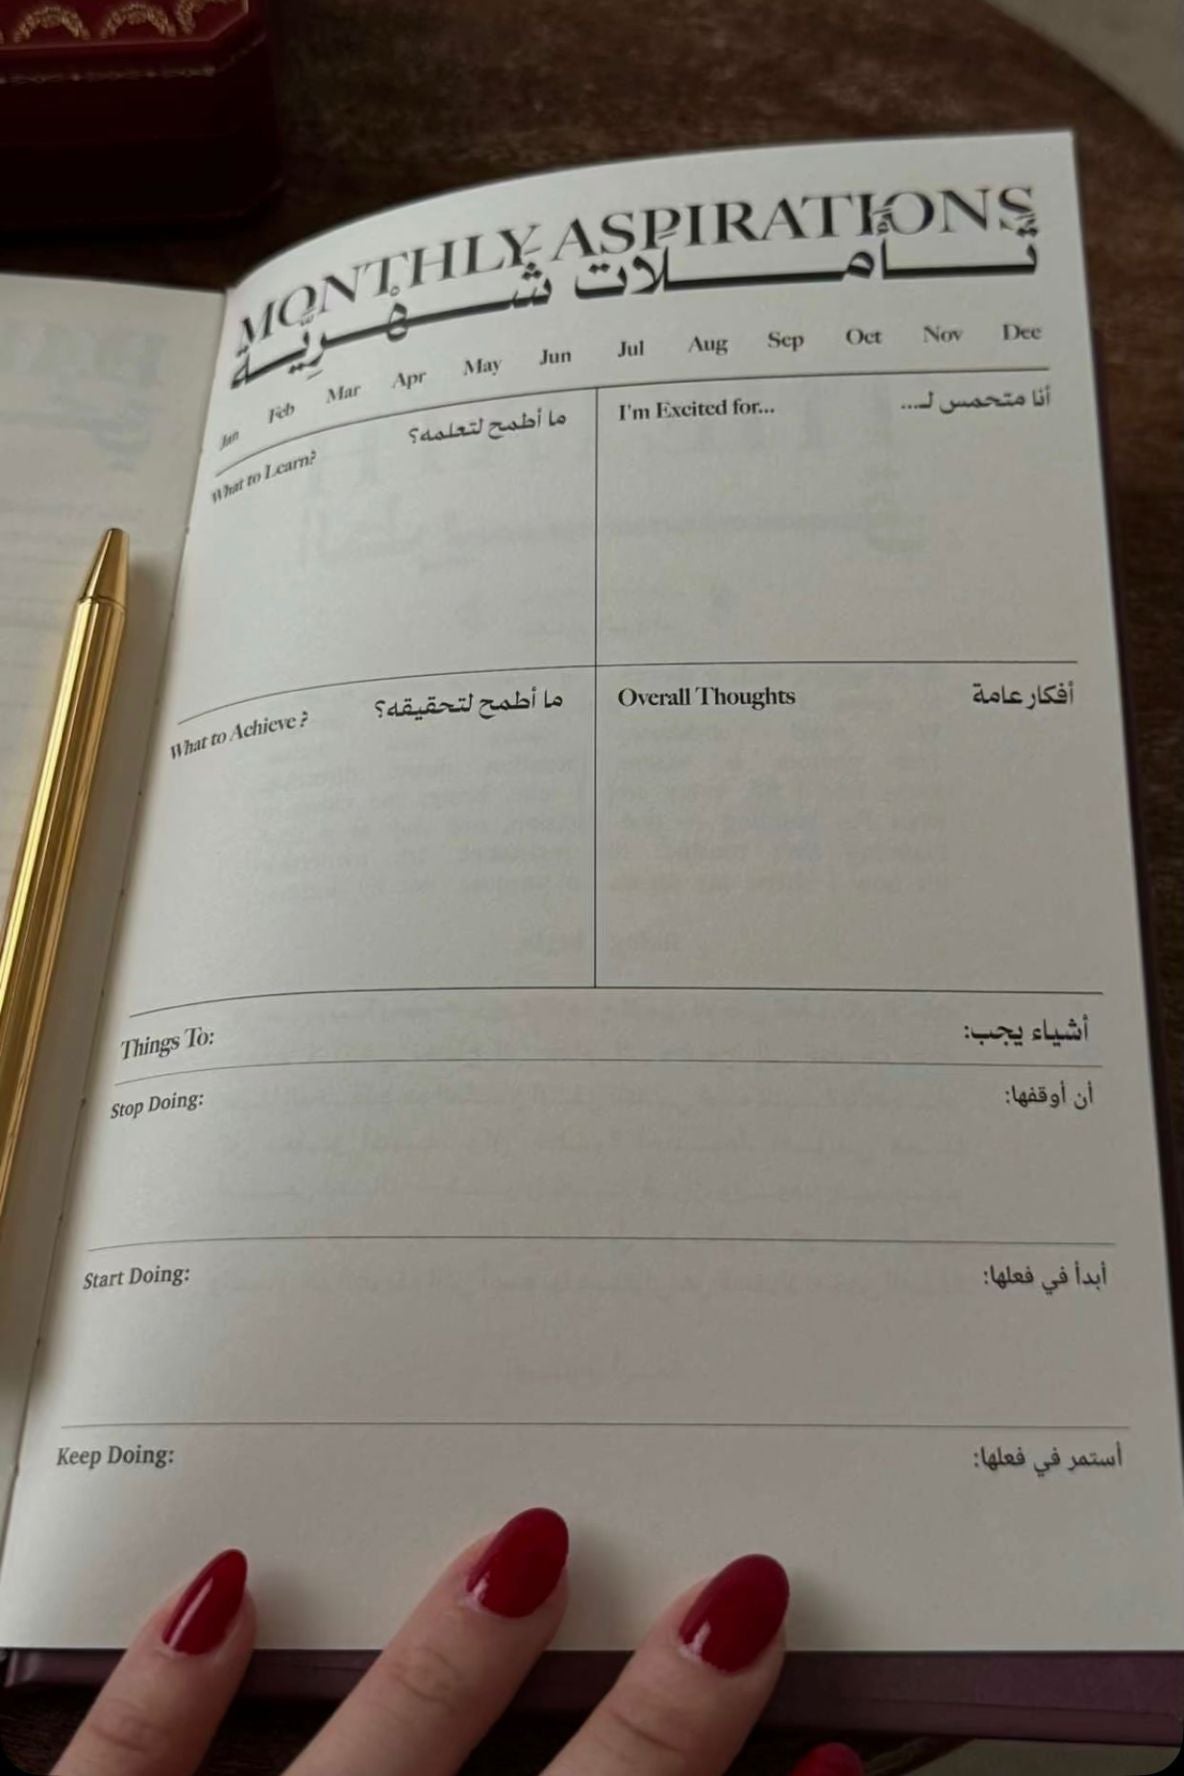 MONTHLY ASPIRATIONS
تأملات شهريّة
Jan Feb Mar Apr May Jun Jul Aug Sep Oct Nov Dec
What to Learn? ما أطمح لتعلمه؟
I'm Excited for... أنا متحمس لـ...
What to Achieve ? ما أطمح لتحقيقه؟
Overall Thoughts أفكار عامة
Things To: أشياء يجب:
Stop Doing: أن أوقفها:
Start Doing: أبدأ في فعلها:
Keep Doing: أستمر في فعلها: